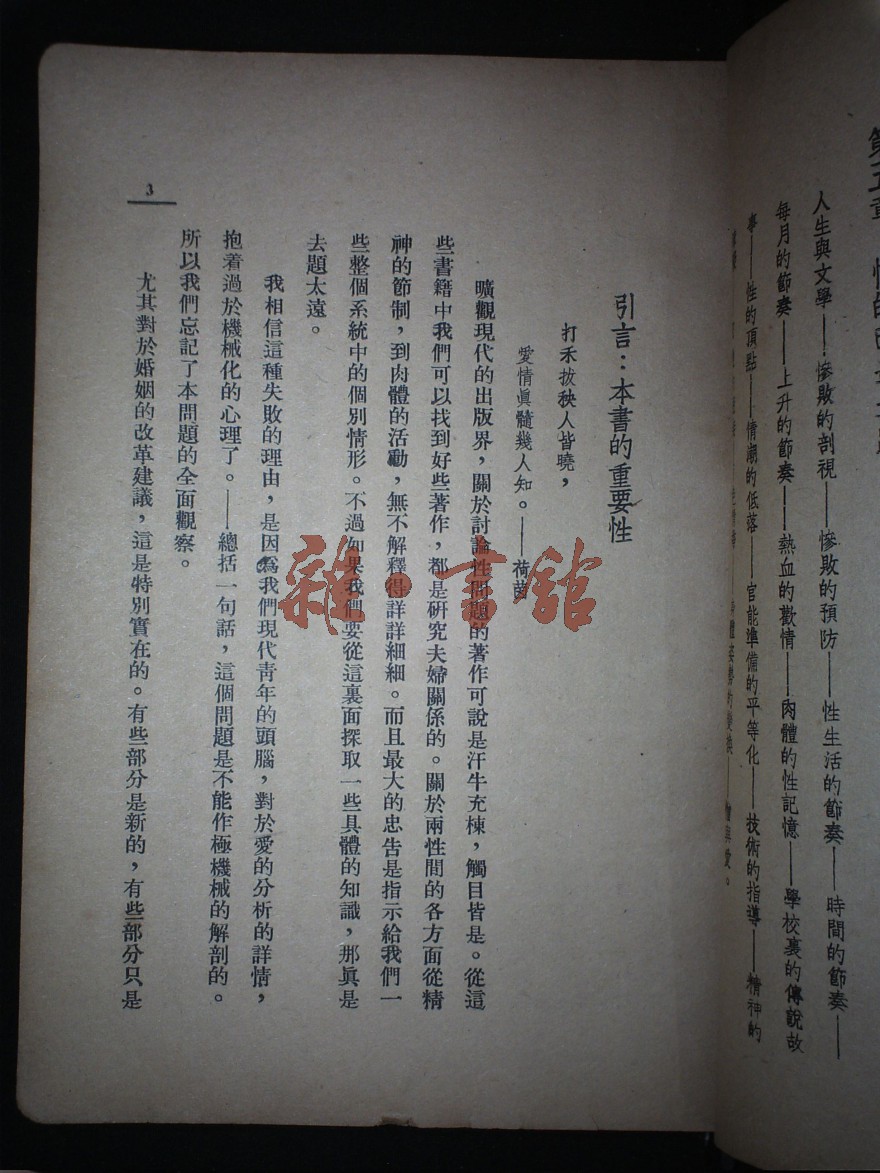 人生與文學——慘敗的剖視——慘敗的預防——性生活的節奏——時間的節奏——
每月的節奏——上升的節奏——熱血的歡情——肉體的性記憶——學校裏的傳說故
事——性的頂點——情潮的低落——官能準備的平等化——技術的指導——精神的
引言：本書的重要性
打禾拔秧人皆曉，
愛情眞髓幾人知。——荷茵
曠觀現代的出版界，關於討論性問題的著作可說是汗牛充棟，觸目皆是。從這
些書籍中我們可以找到好些著作，都是研究夫婦關係的。關於兩性間的各方面從精
神的節制，到肉體的活動，無不解釋得詳詳細細。而且最大的忠告是指示給我們一
些整個系統中的個別情形。不過如果我們要從這裏面探取一些具體的知識，那眞是
去題太遠。
我相信這種失敗的理由，是因爲我們現代靑年的頭腦，對於愛的分析的詳情，
抱着過於機械化的心理了。——總括一句話，這個問題是不能作極機械的解剖的。
所以我們忘記了本問題的全面觀察。
尤其對於婚姻的改革建議，這是特別實在的。有些部分是新的，有些部分只是
3
雜·書舘